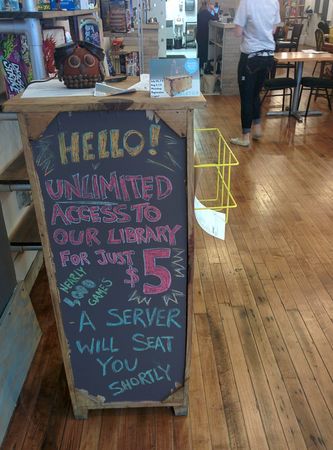 HELLO!
UNLIMITED
ACCESS TO
OUR LIBRARY
FOR JUST
$5
NEARLY
1,000
GAMES
-A SERVER
WILL SEAT
YOU
SHORTLY